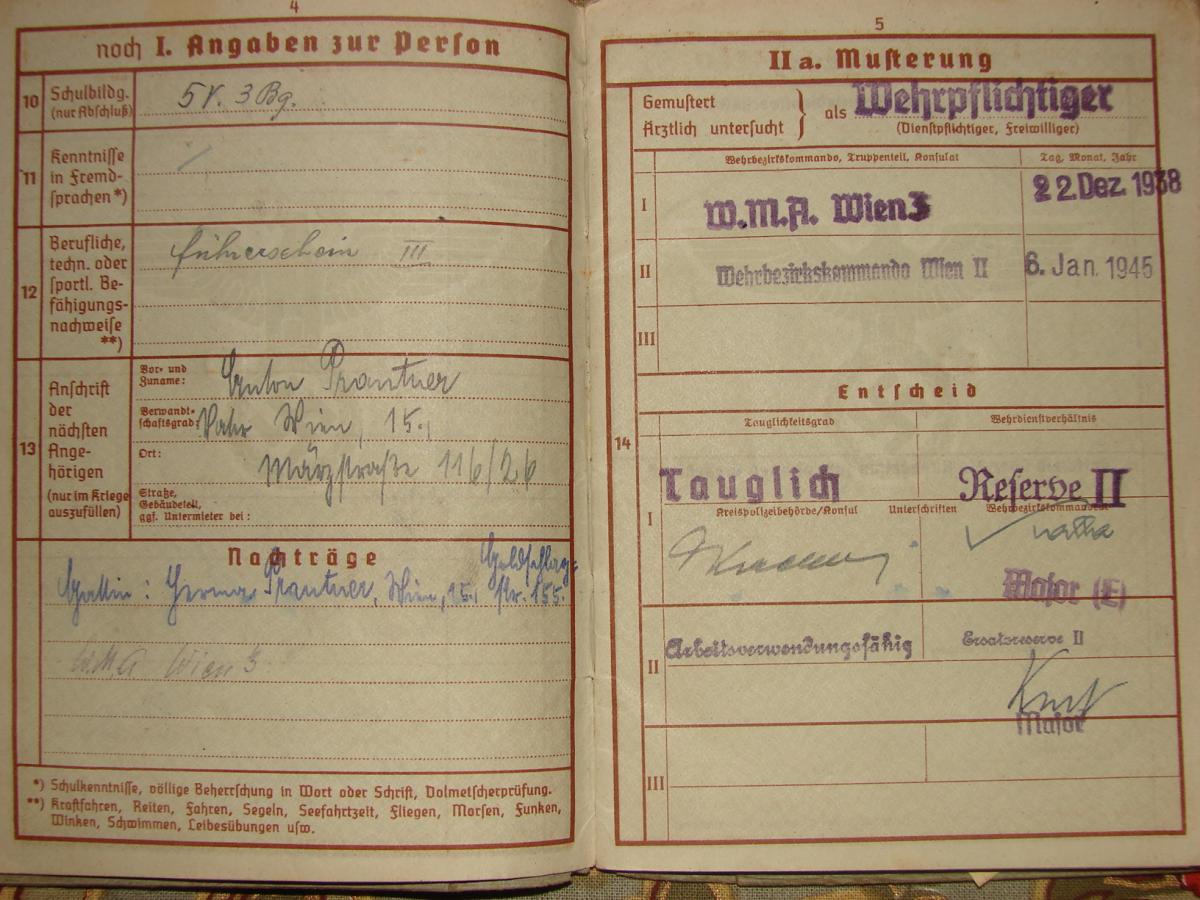 4
noch I. Angaben zur Person
10 Schulbildg. (nur Abschluß)
5 V. 3 Bg.
11 Kenntnisse in Fremd- sprachen *)
12 Berufliche, techn. oder sportl. Be- fähigungs- nachweise **)
Führerschein III
13 Anschrift der nächsten Ange- hörigen (nur im Kriege auszufüllen)
Vor- und Zuname: Anton Prantner
Verwandt- schaftsgrad: Vater Wien, 15.,
Ort: Märzstraße 116/26
Straße, Gebäudeteil, ggf. Untermieter bei:
Nachträge
Goldschlag-
Gattin: Herma Prantner, Wien, 15., str. 155.
W.M.A Wien 3.
*) Schulkenntnisse, völlige Beherrschung in Wort oder Schrift, Dolmetscherprüfung.
**) Kraftfahren, Reiten, Fahren, Segeln, Seefahrtzeit, Fliegen, Morsen, Funken,
Winken, Schwimmen, Leibesübungen usw.
5
II a. Musterung
Gemustert
Ärztlich untersucht } als Wehrpflichtiger
(Dienstpflichtiger, Freiwilliger)
Wehrbezirkskommando, Truppenteil, Konsulat Tag, Monat, Jahr
I W.M.A. Wien 3 22 Dez. 1938
II Wehrbezirkskommando Wien II 6. Jan. 1945
III
Entscheid
14
Tauglichkeitsgrad Wehrdienstverhältnis
Tauglich Reserve II
I Kreispolizeibehörde/Konsul Unterschriften Wehrbezirkskommandeur
Major (E)
II Arbeitsverwendungsfähig Ersatzreserve II
Major
III